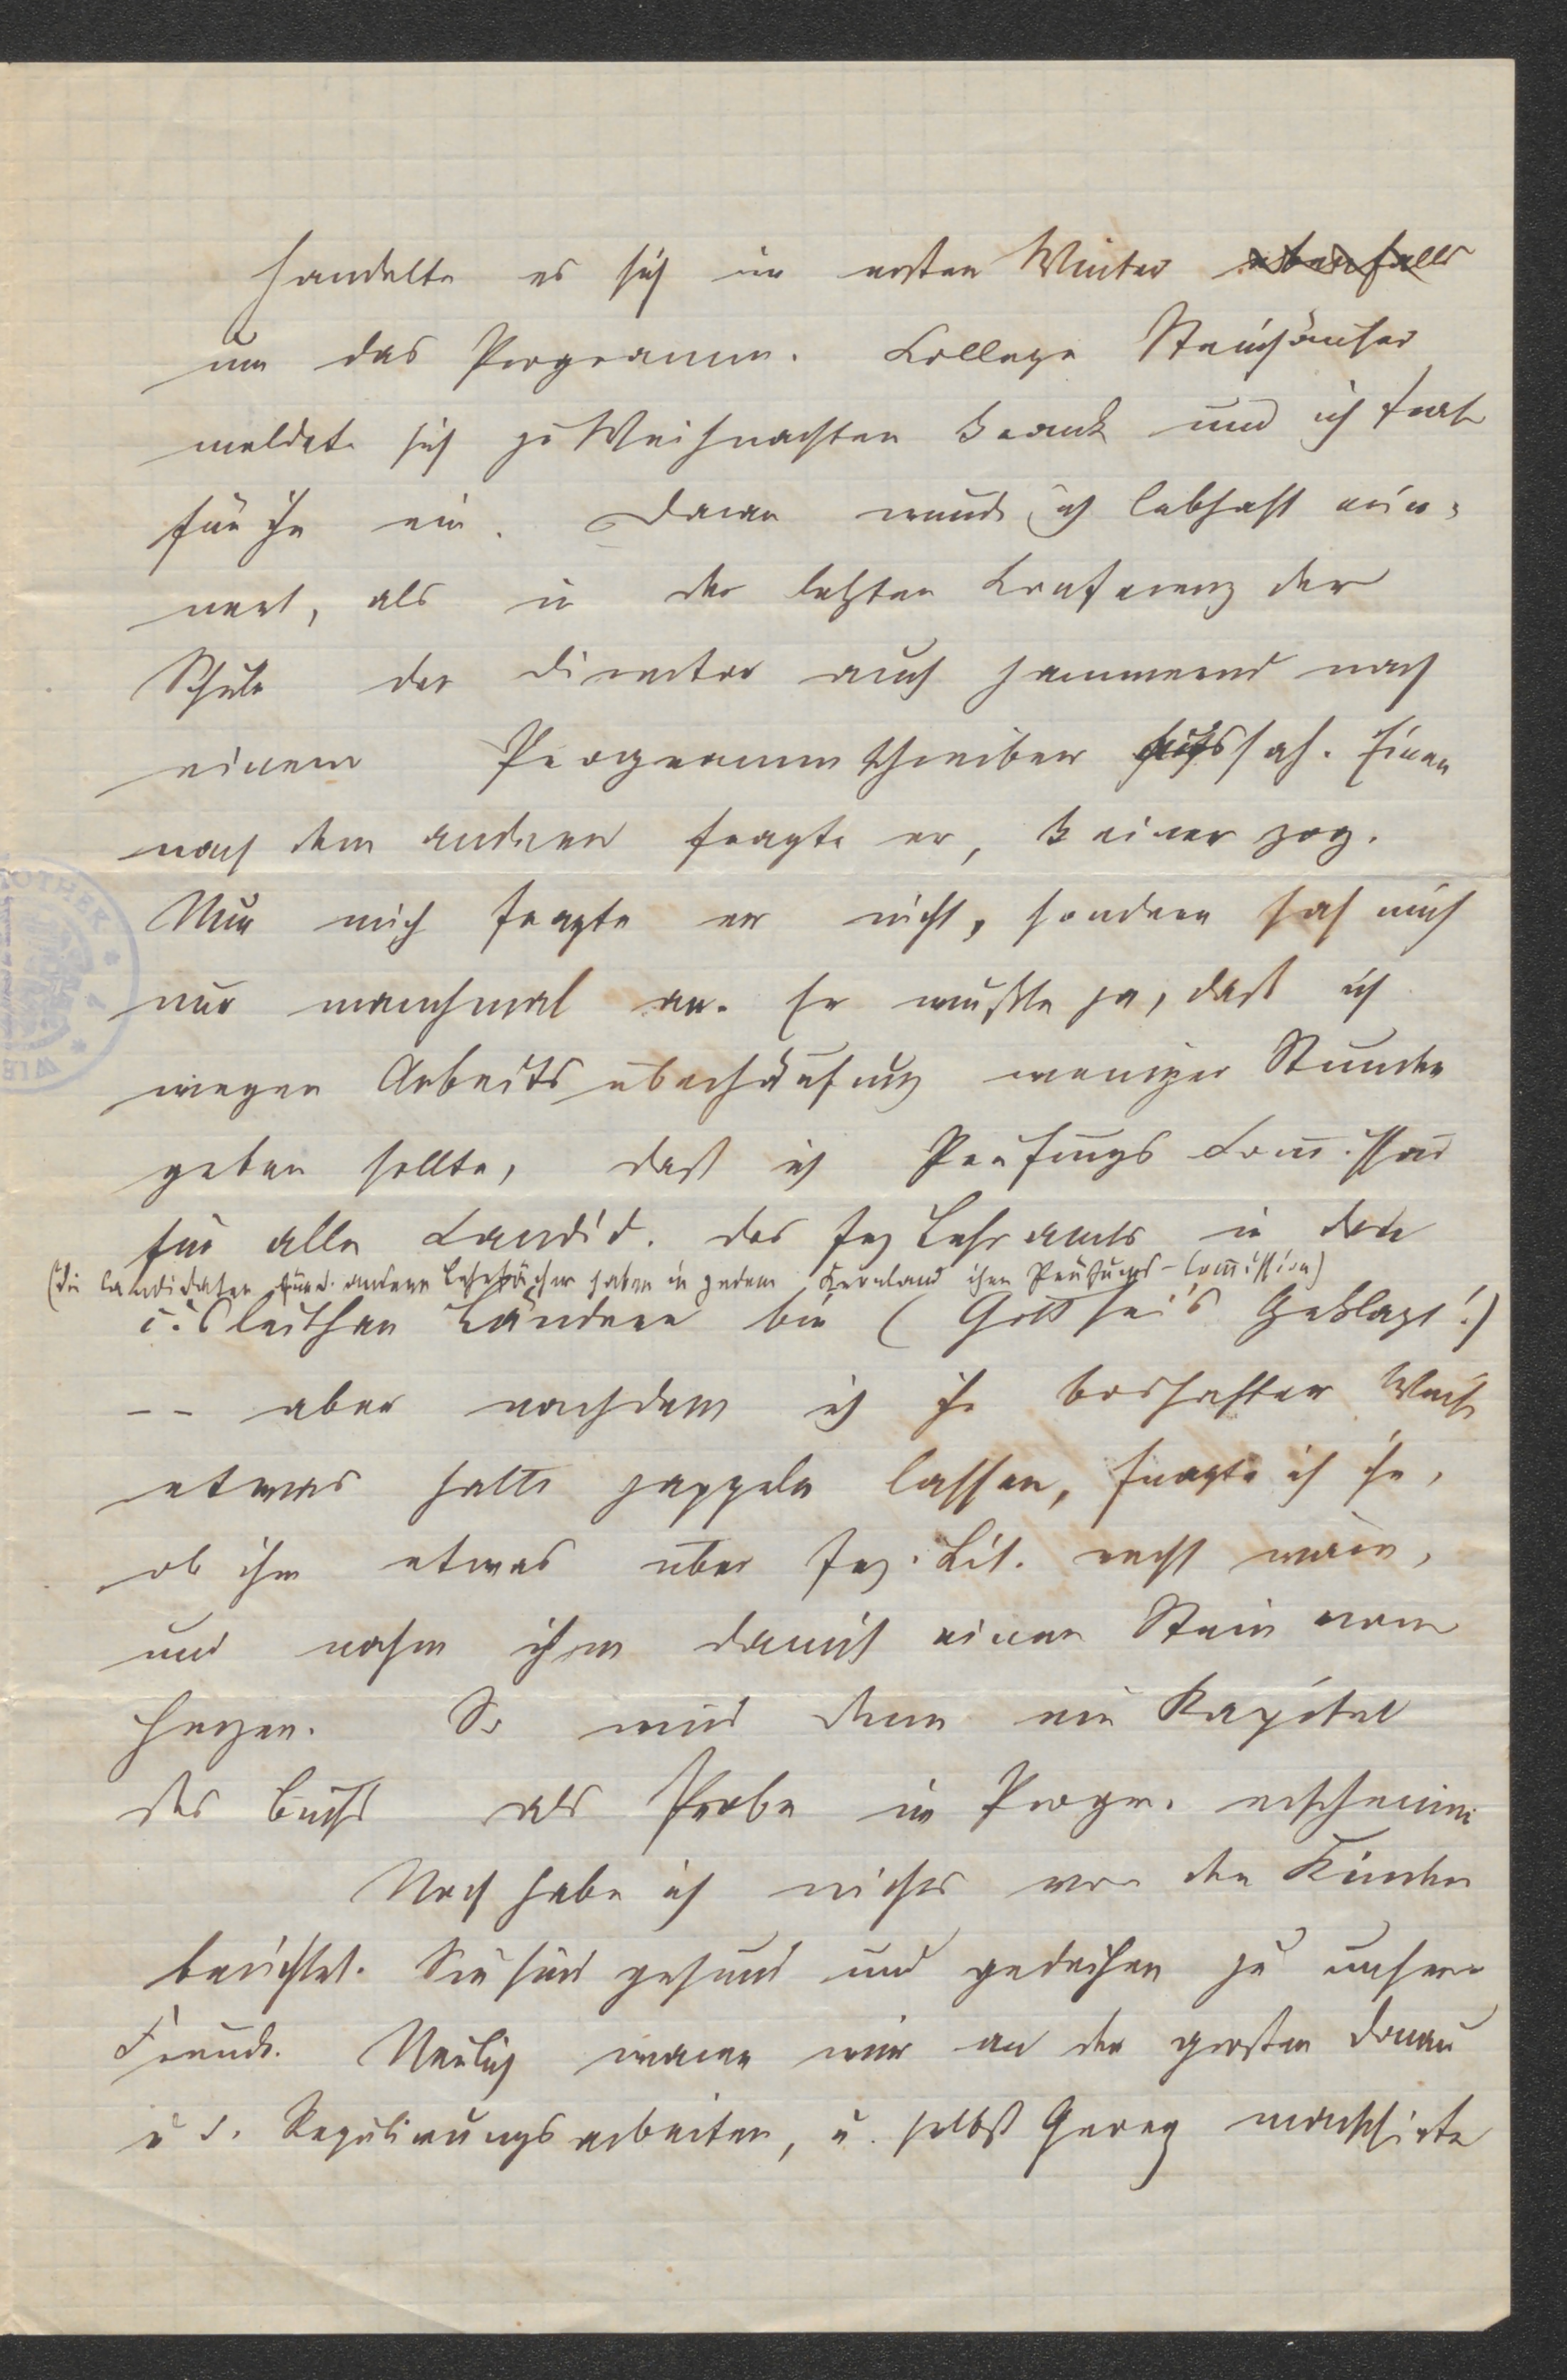 handelte es sich im ersten Winter ebenfalls
um das Programm. College Steinhäuser
meldete sich zu Weihnachten krank und ich trat
für ihn ein. Daran wurde ich lebhaft erin-
nert, als in der letzten Conferenz der
Schule der Director auch jammernd nach
einem Programmschreiber aussah. Einen
nach dem anderen fragte er, keiner zog.
Nur mich fragte er nicht, sondern sah mich
nur manchmal an. Er wußte ja, daß ich
wegen Arbeitsüberhäufung weniger Stunden
geben sollte, daß ich Prüfungs Comissär
für alle Candid. des Lehramts in den
(die Candidaten für d. anderen Lehrfächer haben in jedem Kronland ihre Prüfungs-Comission)
cisleithan Ländern bin (Gott sei's geklagt!)
-- aber nachdem ich ihn boshafter Weise
etwas hatte zappeln lassen, fragte ich ihn,
ob ihm etwas über Lit. recht wäre,
und nahm ihm damit einen Stein vom
Herzen. So wird denn ein Kapitel
des Buchs als Probe im Progr. erscheinen
Noch habe ich nichts von den Kindern
berichtet. Sie sind gesund und gedeihen zu unserer
Freude. Neulich waren wir an der großen Donau
u d. Regulirungsarbeiten, u. selbst Georg marschirte